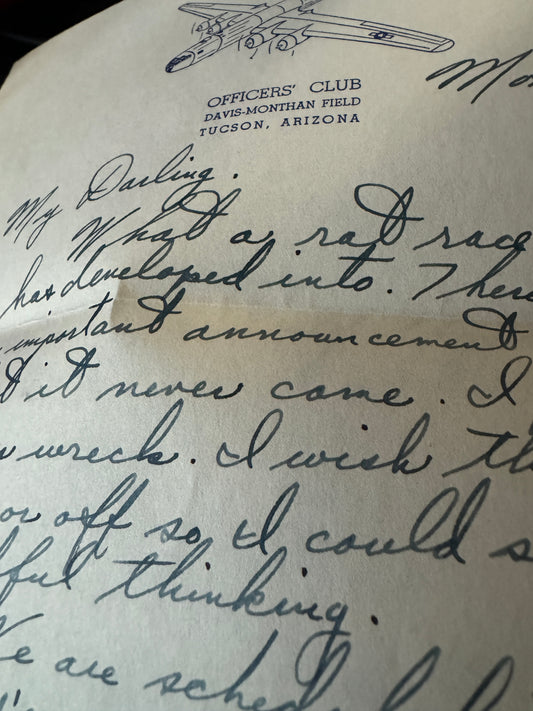 OFFICERS' CLUB
DAVIS-MONTHAN FIELD
TUCSON, ARIZONA
My Darling.
What a rat race
has developed into. There
important announcement
it never came. I
wreck. I wish
or off so I could
thinking.
We are